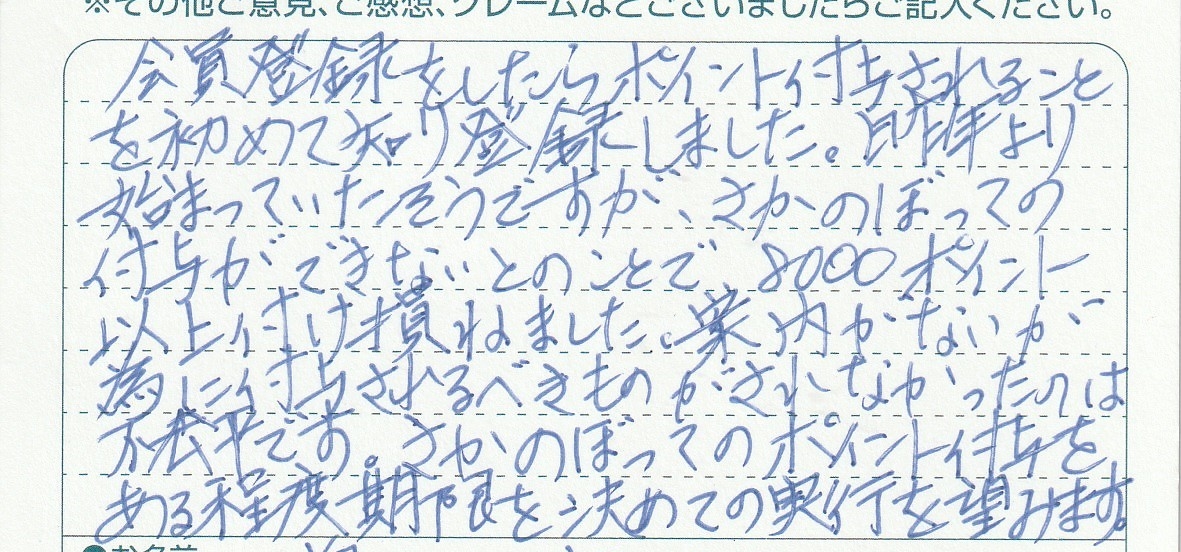 ※その他ご意見、ご感想、クレームなどございましたらご記入ください。
会員登録をしたらポイント付与されること
を初めて知り登録しました。昨年より
始まっていたそうですが、さかのぼっての
付与ができないとのことで 8000ポイント
以上付け損ねました。案内がないが
為に付与されるべきものがされなかったのは
不公平です。さかのぼってのポイント付与を
ある程度期限を決めての実行を望みます。
●お名前